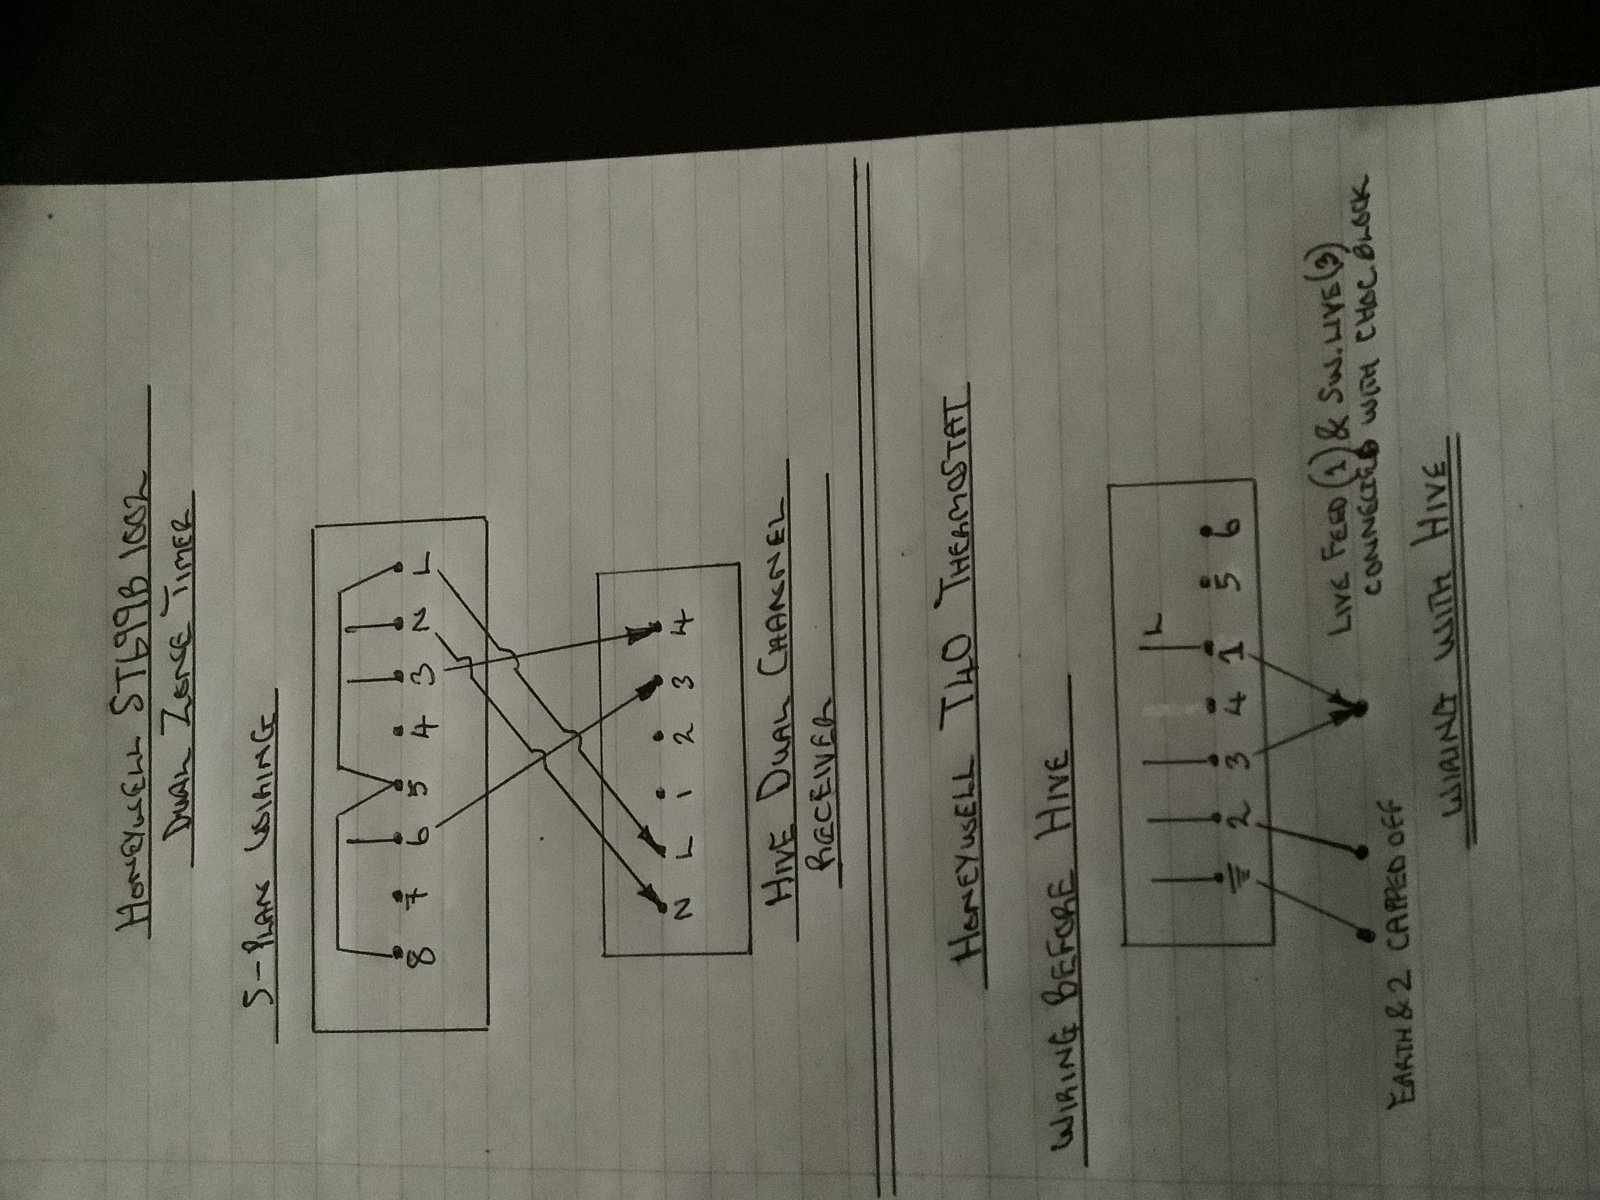 HONEYWELL ST699B 1002
DUAL ZONE TIMER
S-PLAN WIRING
8 7 6 5 4 3 N L
N L 1 2 3 4
HIVE DUAL CHANNEL
RECEIVER
HONEYWELL T40 THERMOSTAT
WIRING BEFORE HIVE
L
2 3 4 1 5 6
LIVE FEED (1) & SW. LIVE (3)
CONNECTED WITH CHOC. BLOCK
EARTH & 2 CAPPED OFF
WIRING WITH HIVE